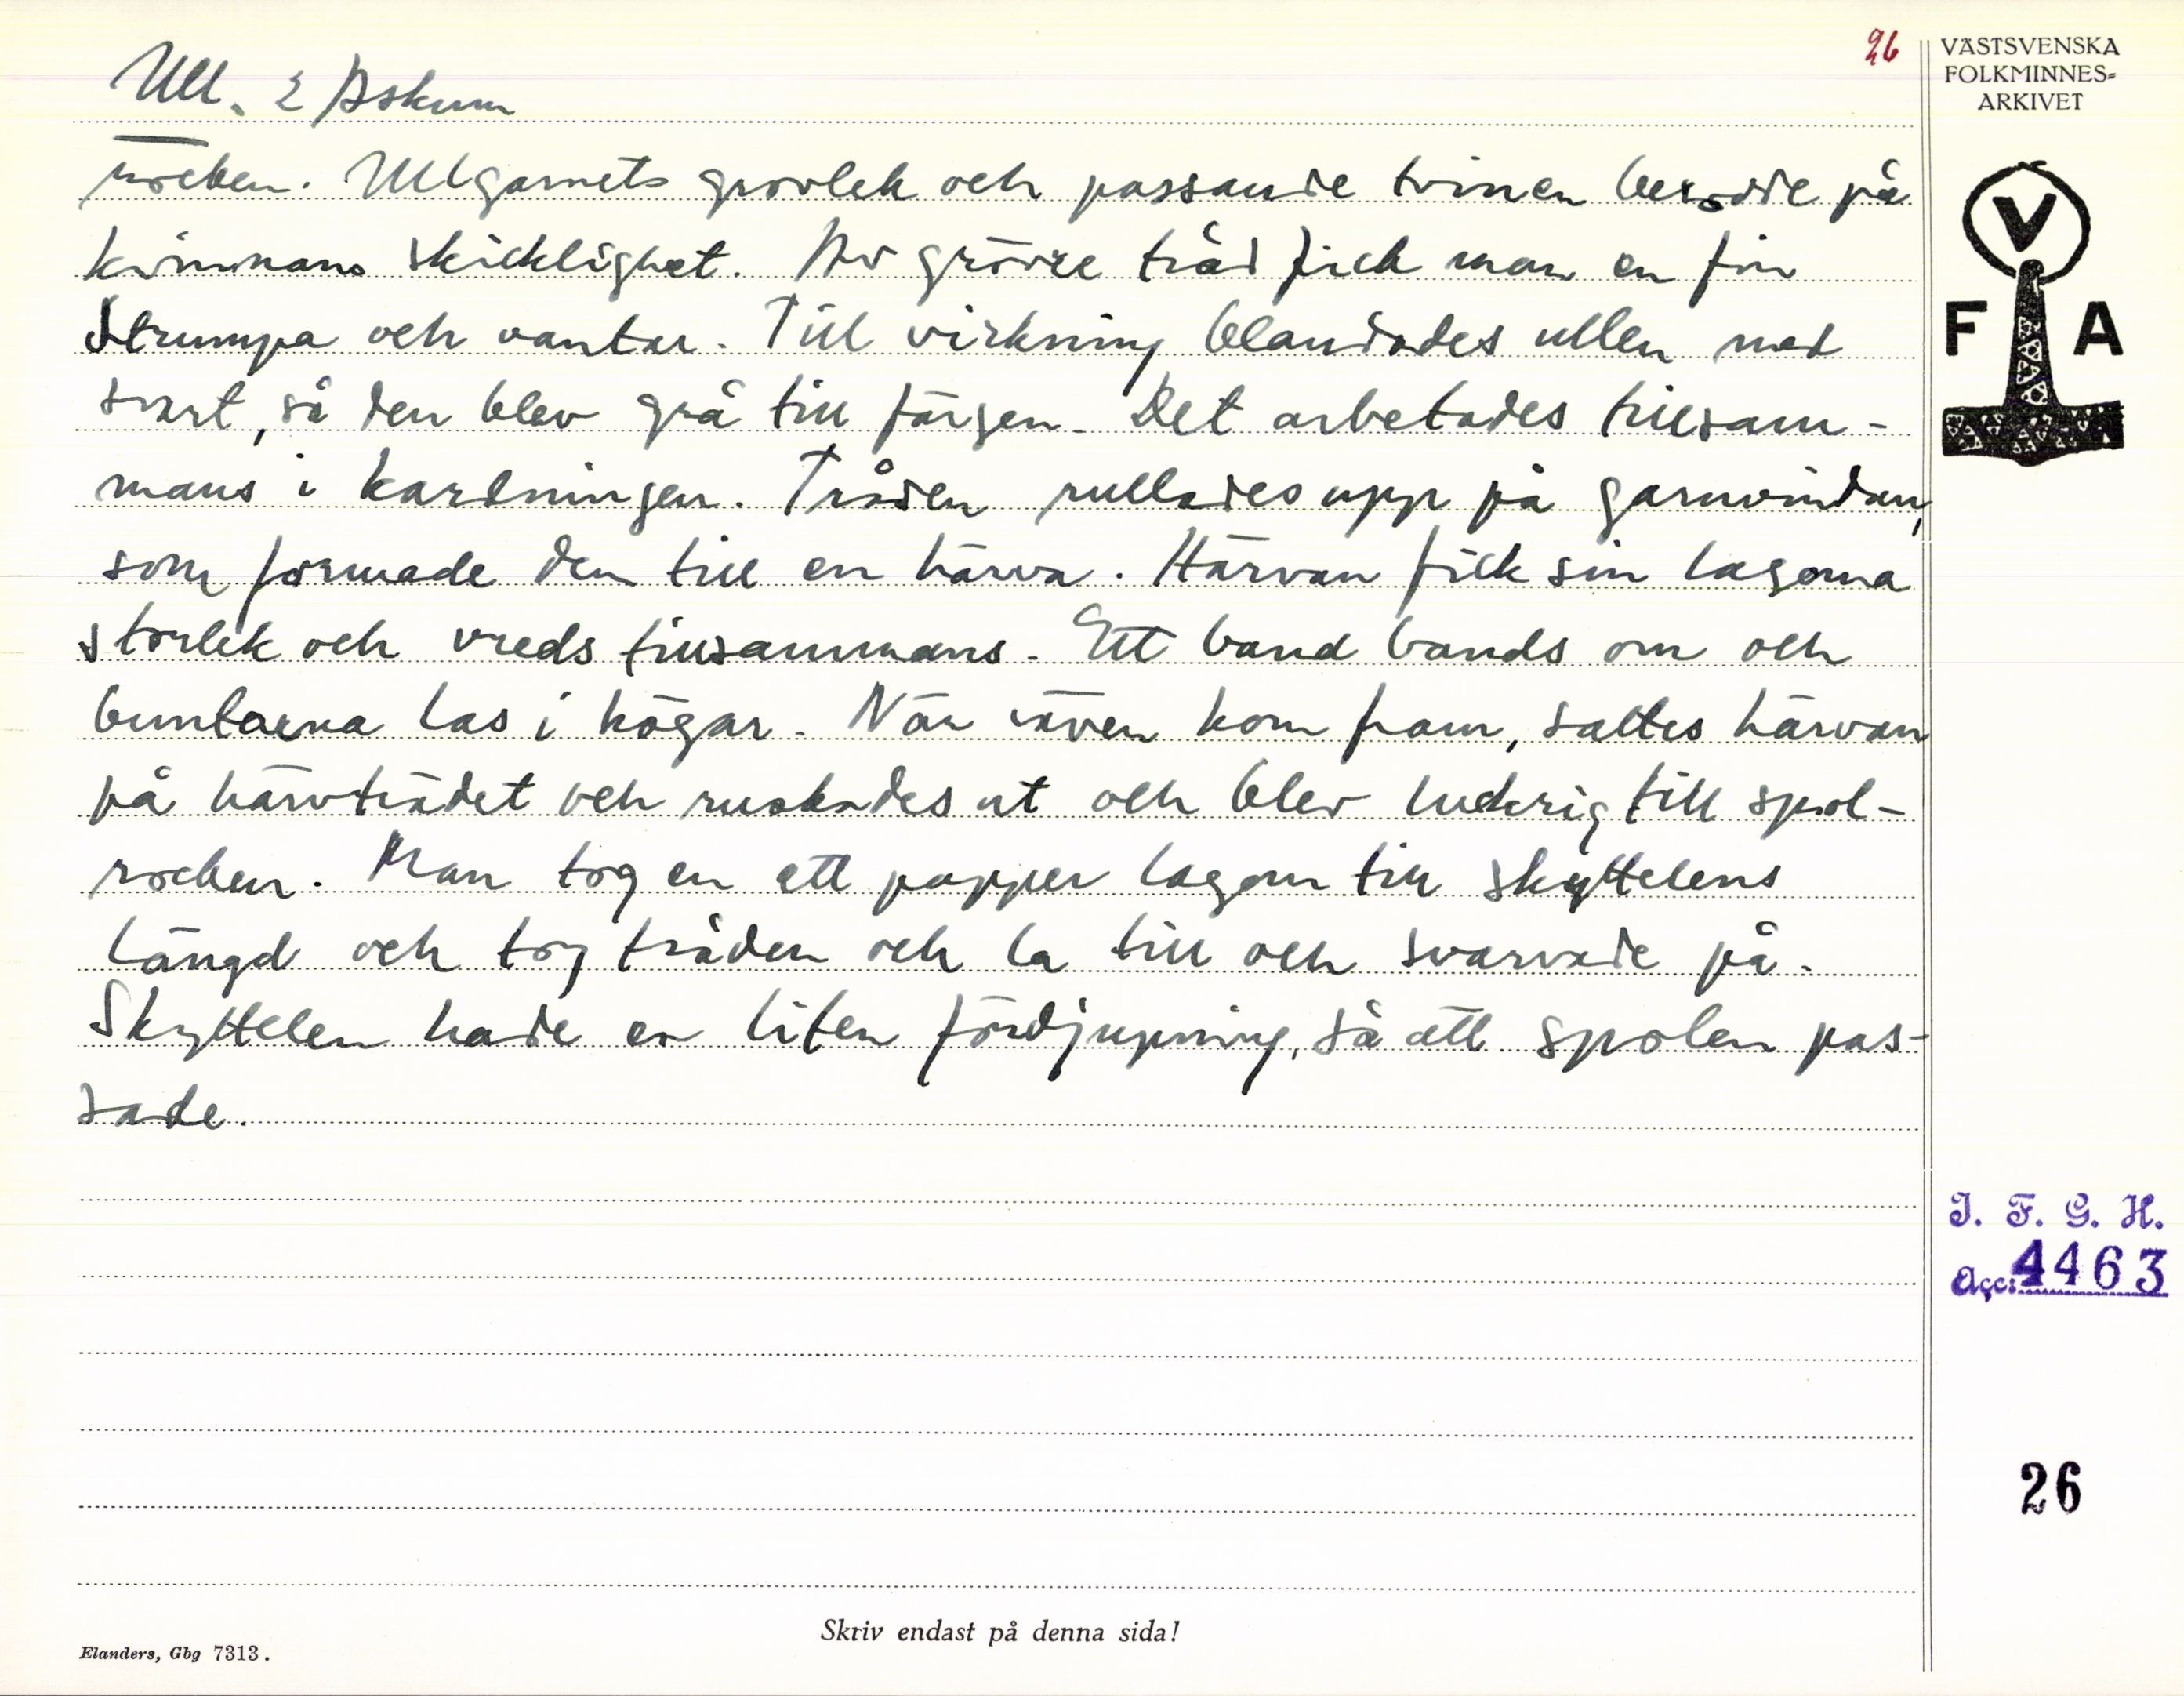 26
VÄSTSVENSKA
FOLKMINNES-
ARKIVET
Ull. 2 Askum
rocken. Ullgarnets grovlek och passande tvinen berodde på
kvinnans skicklighet. Av grövre tråd fick man en fin
strumpa och vantar. Till virkning blandades ullen med
svart, så den blev grå till färgen. Det arbetades tillsam-
mans i kardningen. Tråden rullades upp på garnvindan,
som formade den till en härva. Härvan fick sin lagoma
storlek och vreds tillsammans. Ett band bands om och
buntarna las i högar. När väven kom fram, sattes härvan
på härvträdet och ruskades ut och blev luckrig till spol-
rocken. Man tog en ett papper lagom till skyttelens
längd och tog tråden och la till och svarvade på.
Skyttelen hade en liten fördjupning, så att spolen pas-
sade.
V
F A
I. F. G. H.
Acc: 4463
26
Skriv endast på denna sida!
Elanders, Gbg 7313.